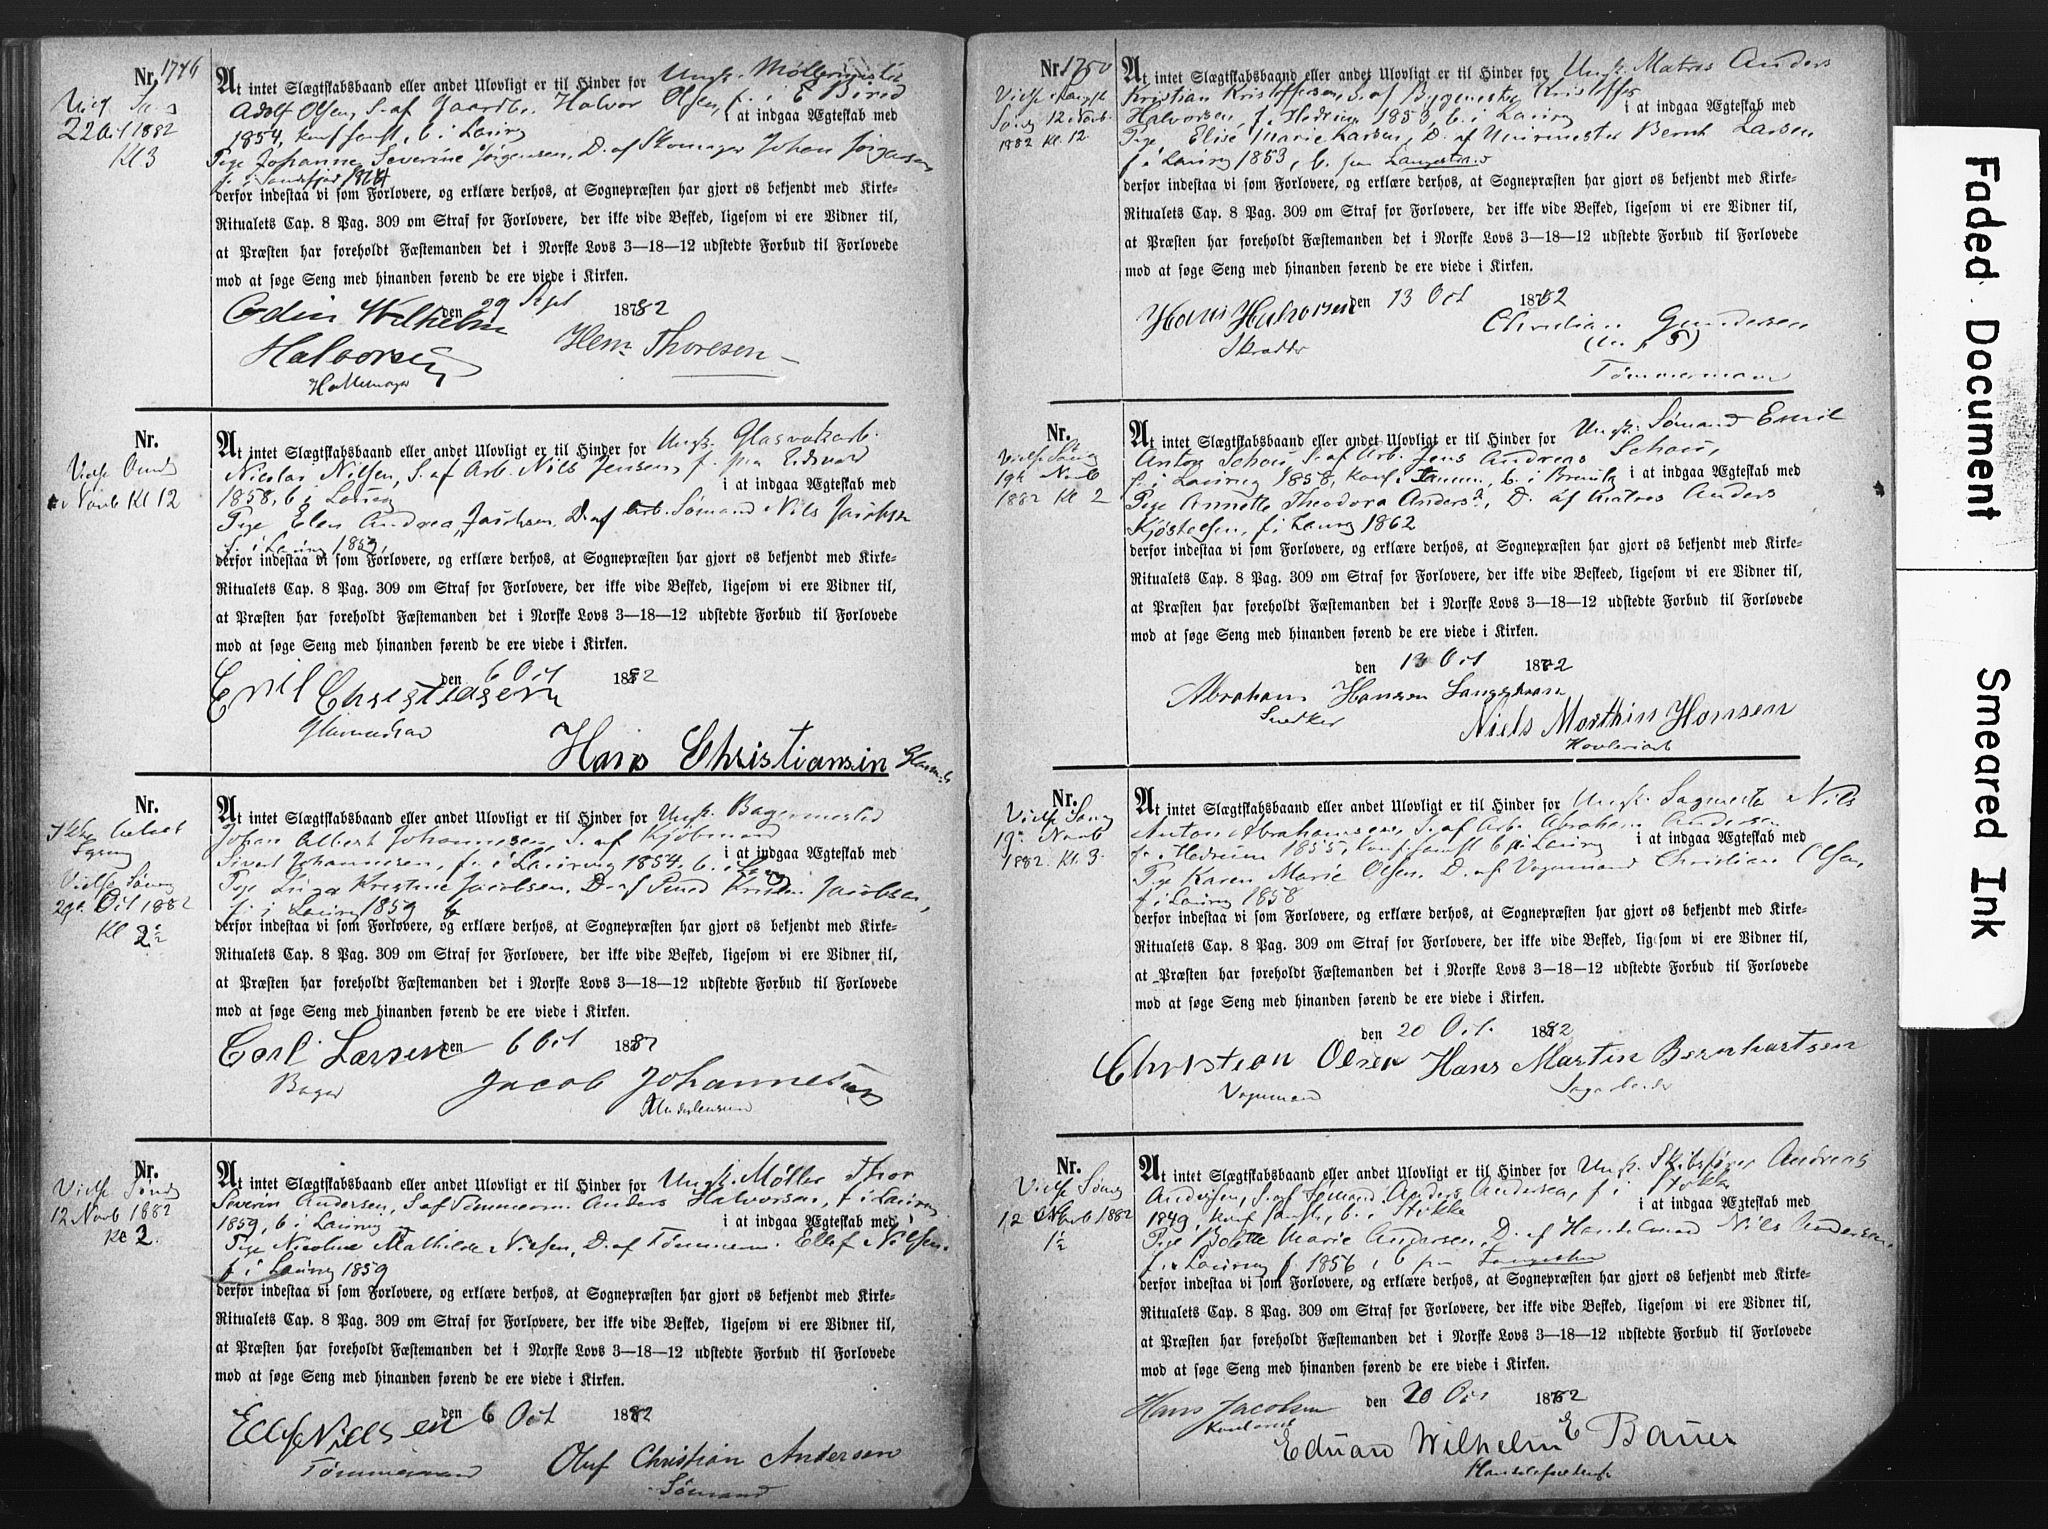 Nr. 1746
At intet Slægtskabsbaand eller andet Ulovligt er til Hinder for Ungk. Møllermester
Adolf Olsen, S. af Gaardbr. Halvor Olsen, f. i E Birid
i at indgaa Ægteskab med
1854, konf samst, b. i Laurv
Pige Johanne Severine Jørgensen, D. af Skomager Johan Jørgensen
f. i Sandefjord
derfor indestaa vi som Forlovere, og erklære derhos, at Sognepræsten har gjort os bekjendt med Kirke-
Ritualets Cap. 8 Pag. 309 om Straf for Forlovere, der ikke vide Besked, ligesom vi ere Vidner til,
at Præsten har foreholdt Fæstemanden det i Norske Lovs 3—18—12 udstedte Forbud til Forlovede
mod at søge Seng med hinanden førend de ere viede i Kirken.
den 29 Sept 1882
Odin Wilhelm
Halvorsen
Hem Thoresen
Viel
22 1882
Kl 3
Nr.
Vielse
Novb Kl 12
At intet Slægtskabsbaand eller andet Ulovligt er til Hinder for Ungk. Glasværkarb.
Nicolai Nilsen, S. af Arb. Nils Jensen, f. paa Eidsvold
i at indgaa Ægteskab med
1858, b. i Laurv
Pige Elen Andrea Jacobsen, D. af Sømand Nils Jacobsen
f. i Laurv 1859,
derfor indestaa vi som Forlovere, og erklære derhos, at Sognepræsten har gjort os bekjendt med Kirke-
Ritualets Cap. 8 Pag. 309 om Straf for Forlovere, der ikke vide Besked, ligesom vi ere Vidner til,
at Præsten har foreholdt Fæstemanden det i Norske Lovs 3—18—12 udstedte Forbud til Forlovede
mod at søge Seng med hinanden førend de ere viede i Kirken.
den 6 Oct 1882
Emil Christiasen
Hans Christiansin
Nr.
Vielse Søndg
29de Oct 1882
Kl 2½
At intet Slægtskabsbaand eller andet Ulovligt er til Hinder for Ungk. Bagermester
Johan Albert Johannesen, S. af Kjøbmand
Sivert Johannesen, f. i Laurvig 1854, b. i Laurv
i at indgaa Ægteskab med
Pige Kristine Jacobsen, D. af Jacobsen,
f. i Laurv 1859
derfor indestaa vi som Forlovere, og erklære derhos, at Sognepræsten har gjort os bekjendt med Kirke-
Ritualets Cap. 8 Pag. 309 om Straf for Forlovere, der ikke vide Besked, ligesom vi ere Vidner til,
at Præsten har foreholdt Fæstemanden det i Norske Lovs 3—18—12 udstedte Forbud til Forlovede
mod at søge Seng med hinanden førend de ere viede i Kirken.
den 6 Oct 1882
Carl Larsen
Bager
Jacob Johannesen
Nr.
Vielse Søndg
12 Novb 1882
Kl 2.
At intet Slægtskabsbaand eller andet Ulovligt er til Hinder for Ungk. Møller Thor
Severin Andersen, S af Tømmerm. Anders Halvorsen, f. i Laurv
1859, b. i Laurvg
i at indgaa Ægteskab med
Pige Nicoline Mathilde Nilsen, D. af Tømmerm. Ellef Nilsen.
f. i Laurvg 1859
derfor indestaa vi som Forlovere, og erklære derhos, at Sognepræsten har gjort os bekjendt med Kirke-
Ritualets Cap. 8 Pag. 309 om Straf for Forlovere, der ikke vide Besked, ligesom vi ere Vidner til,
at Præsten har foreholdt Fæstemanden det i Norske Lovs 3—18—12 udstedte Forbud til Forlovede
mod at søge Seng med hinanden førend de ere viede i Kirken.
den 6 Oct 1882
Ellef Nielsen
Tømmermand
Oluf Christian Andersen
Sømand
Nr. 1750
Vielse Langest
Søndg 12 Novb.
1882 Kl. 12
At intet Slægtskabsbaand eller andet Ulovligt er til Hinder for Ungk. Matros Anders
Kristian Kristoffersen, S. af Bygmester Kristoffer
i at indgaa Ægteskab med
Halvorsen, f. i Hedrum 1853, b. i Laurv
Pige Elise Marie Larsen, D. af Murmester Bernt Larsen
f. i Laurvg 1853, b. paa Langestrand
derfor indestaa vi som Forlovere, og erklære derhos, at Sognepræsten har gjort os bekjendt med Kirke-
Ritualets Cap. 8 Pag. 309 om Straf for Forlovere, der ikke vide Besked, ligesom vi ere Vidner til,
at Præsten har foreholdt Fæstemanden det i Norske Lovs 3—18—12 udstedte Forbud til Forlovede
mod at søge Seng med hinanden førend de ere viede i Kirken.
den 13 Oct 1882
Hans Halvorsen
Skrædder
Christian Gundersen
(m. f. P)
Tømmermand
Nr.
Vielse Søndg
19de Novb
1882 Kl. 2
At intet Slægtskabsbaand eller andet Ulovligt er til Hinder for Ungk. Sømand Emil
Anton Schou, S. af Arb. Jens Andreas Schou,
i at indgaa Ægteskab med
f. i Laurvig 1858, konf i Tanum, b. i Brunla
Pige Annette Theodora Anders?, D. af Matros Anders
Kjøstelsen, f. i Laurvg 1862
derfor indestaa vi som Forlovere, og erklære derhos, at Sognepræsten har gjort os bekjendt med Kirke-
Ritualets Cap. 8 Pag. 309 om Straf for Forlovere, der ikke vide Beskeed, ligesom vi ere Vidner til,
at Præsten har foreholdt Fæstemanden det i Norske Lovs 3—18—12 udstedte Forbud til Forlovede
mod at søge Seng med hinanden førend de ere viede i Kirken.
den 13 Oct 1882
Abraham Hansen Langestran
Snedker
Niels Morthin Hansen
Høvleriarb
Nr.
Vielse Søndg
19de Novb
1882. Kl. 3.
At intet Slægtskabsbaand eller andet Ulovligt er til Hinder for Ungk. Sagmester Nils
Anton Abrahamsen, S. af Arb. Abraham Andersen
i at indgaa Ægteskab med
f. i Hedrum 1855, konf. samst b. i Laurvg
Pige Karen Marie Olsen, D. af Vognmand Christian Olsen,
f. i Laurvg 1858
derfor indestaa vi som Forlovere, og erklære derhos, at Sognepræsten har gjort os bekjendt med Kirke-
Ritualets Cap. 8 Pag. 309 om Straf for Forlovere, der ikke vide Besked, ligesom vi ere Vidner til,
at Præsten har foreholdt Fæstemanden det i Norske Lovs 3—18—12 udstedte Forbud til Forlovede
mod at søge Seng med hinanden førend de ere viede i Kirken.
den 20 Oct. 1882
Christian Olsen
Vognmand
Hans Martin Bernhartsen
Sagarbeider
Nr.
Vielse Søndg
12 Novb 1882
1½
At intet Slægtskabsbaand eller andet Ulovligt er til Hinder for Ungk. Skibsfører Andreas
Andersen, S. af Sømand Anders Andersen, f. i Stokke
i at indgaa Ægteskab med
1849, konf samst, b. i Stokke
Pige Bolette Marie Andersen, D. af Handelsmand Nils Andersen,
f. i Laurvg 1856, b paa Langestran
derfor indestaa vi som Forlovere, og erklære derhos, at Sognepræsten har gjort os bekjendt med Kirke-
Ritualets Cap. 8 Pag. 309 om Straf for Forlovere, der ikke vide Besked, ligesom vi ere Vidner til,
at Præsten har foreholdt Fæstemanden det i Norske Lovs 3—18—12 udstedte Forbud til Forlovede
mod at søge Seng med hinanden førend de ere viede i Kirken.
den 20 Oct 1882
Hans Jacobsen
Eduan Wilhelm E Bauer
Faded Document
Smeared Ink